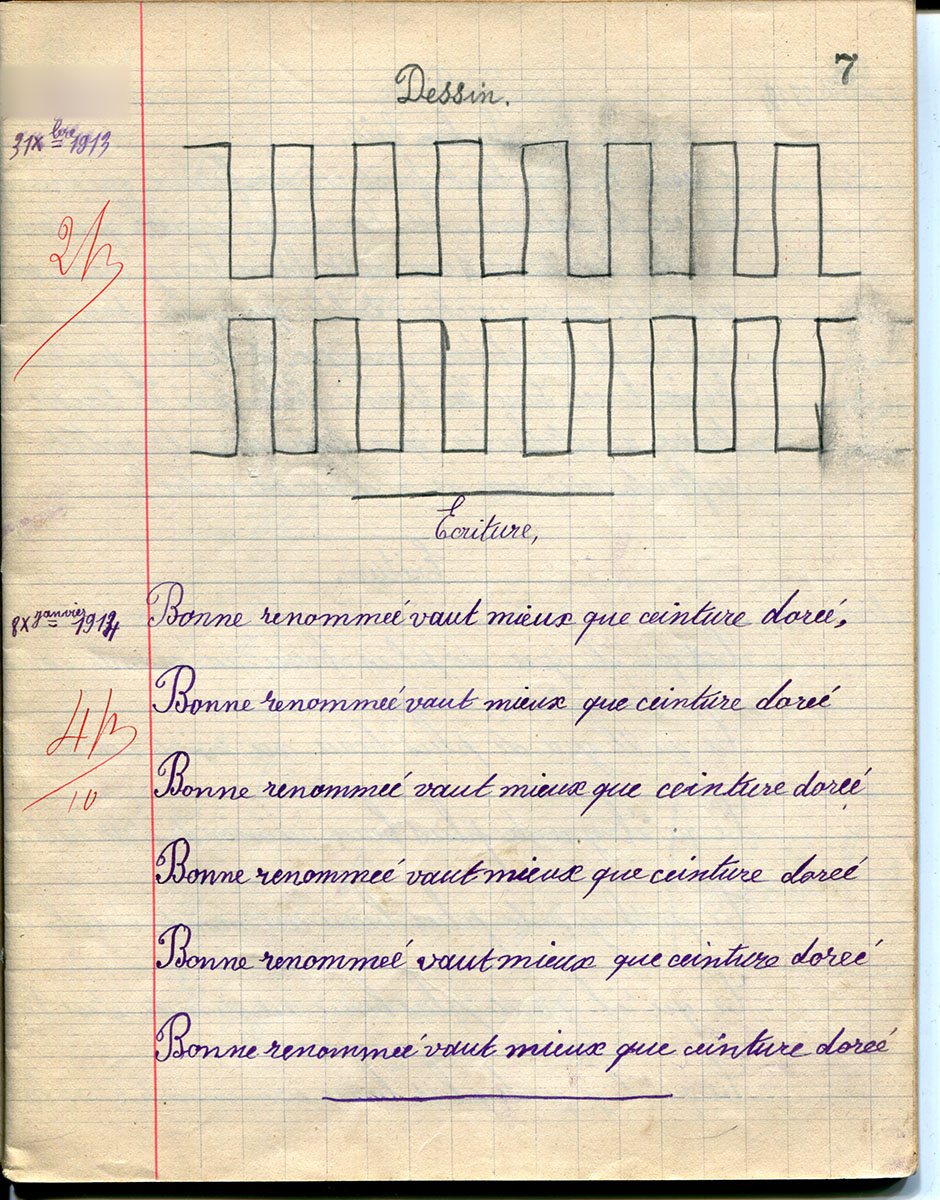 7
Dessin.
31 Xbre 1913
2
Ecriture,
8 X janvier 1914
Bonne renommeé vaut mieux que ceinture doreé,
Bonne renommeé vaut mieux que ceinture doreé
4
10
Bonne renommeé vaut mieux que ceinture doreé
Bonne renommeé vaut mieux que ceinture doreé
Bonne renommeé vaut mieux que ceinture doreé
Bonne renommeé vaut mieux que ceinture doreé